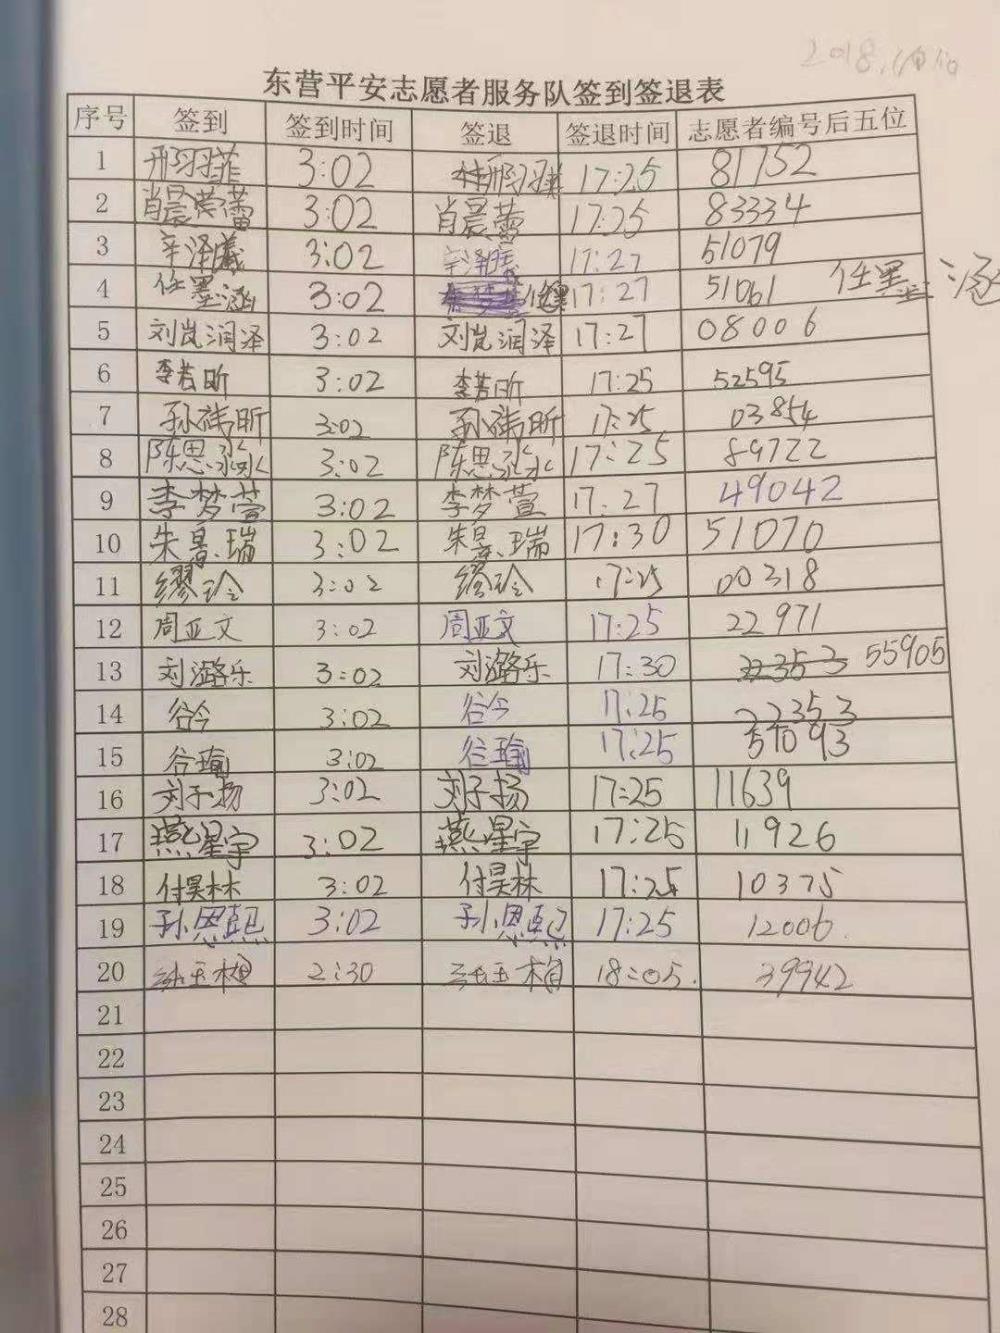 东营平安志愿者服务队签到签退表
序号 签到 签到时间 签退 签退时间 志愿者编号后五位
1 邢羽菲 3:02 17:25 81752
2 肖晨蕾 3:02 肖晨蕾 17:25 83334
3 辛泽曦 3:02 辛泽曦 17:27 51079
4 任墨涵 3:02 任墨 17:27 51061 任墨涵
5 刘岚润泽 3:02 刘岚润泽 17:27 08006
6 李若昕 3:02 李若昕 17:25 52595
7 孙祎昕 3:02 孙祎昕 17:25 03854
8 陈思泳 3:02 陈思泳 17:25 89722
9 李梦萱 3:02 李梦萱 17:27 49042
10 朱景瑞 3:02 朱景瑞 17:30 51070
11 缪玲 3:02 缪玲 17:25 00318
12 周亚文 3:02 周亚文 17:25 22971
13 刘潞乐 3:02 刘潞乐 17:30 22353 55905
14 谷今 3:02 谷今 17:25 22353
15 谷瑜 3:02 谷瑜 17:25 51093
16 刘子扬 3:02 刘子扬 17:25 11639
17 燕星宇 3:02 燕星宇 17:25 11926
18 付昊林 3:02 付昊林 17:25 10375
19 孙恩熙 3:02 孙恩熙 17:25 12006.
20 2:30 18:05. 39942
21
22
23
24
25
26
27
28